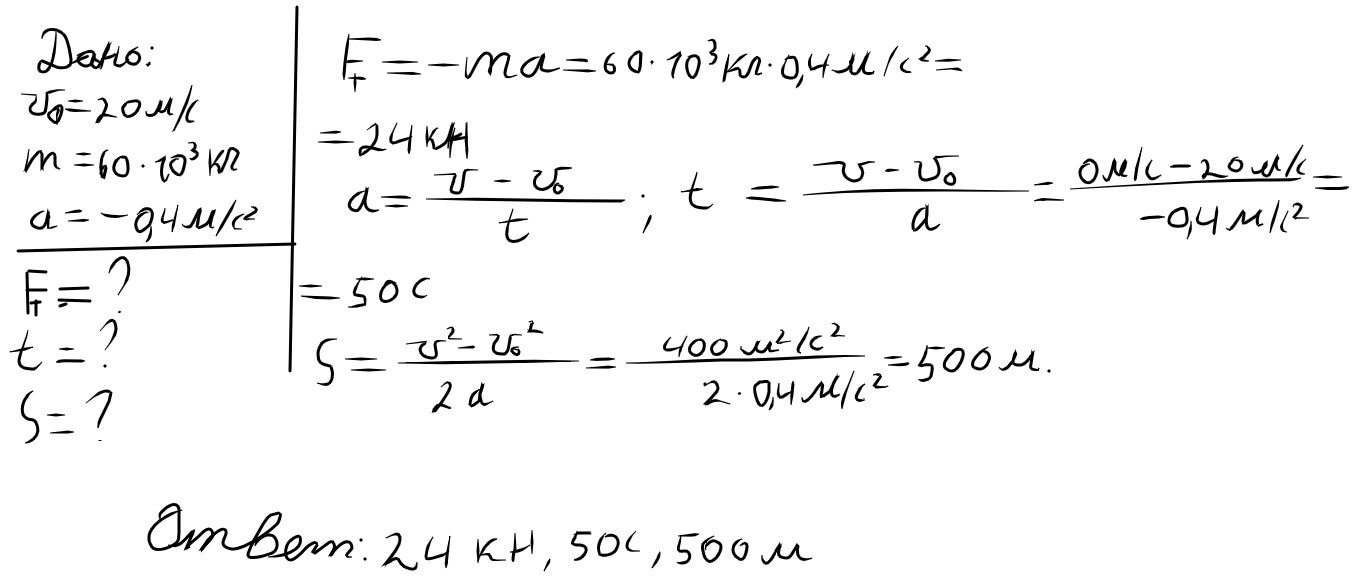 Дано:
v₀=20 м/с
m=60·10³ кг
a=-0,4 м/с²
Fт=?
t=?
S=?
Fт=-ma=60·10³ кг·0,4 м/с²=
=24 кН
a=(v-v₀)/t; t=(v-v₀)/a=(0 м/с-20 м/с)/(-0,4 м/с²)=
=50 с
S=(v²-v₀²)/(2a)=(400 м²/с²)/(2·0,4 м/с²)=500 м.
Ответ: 24 кН, 50с, 500 м